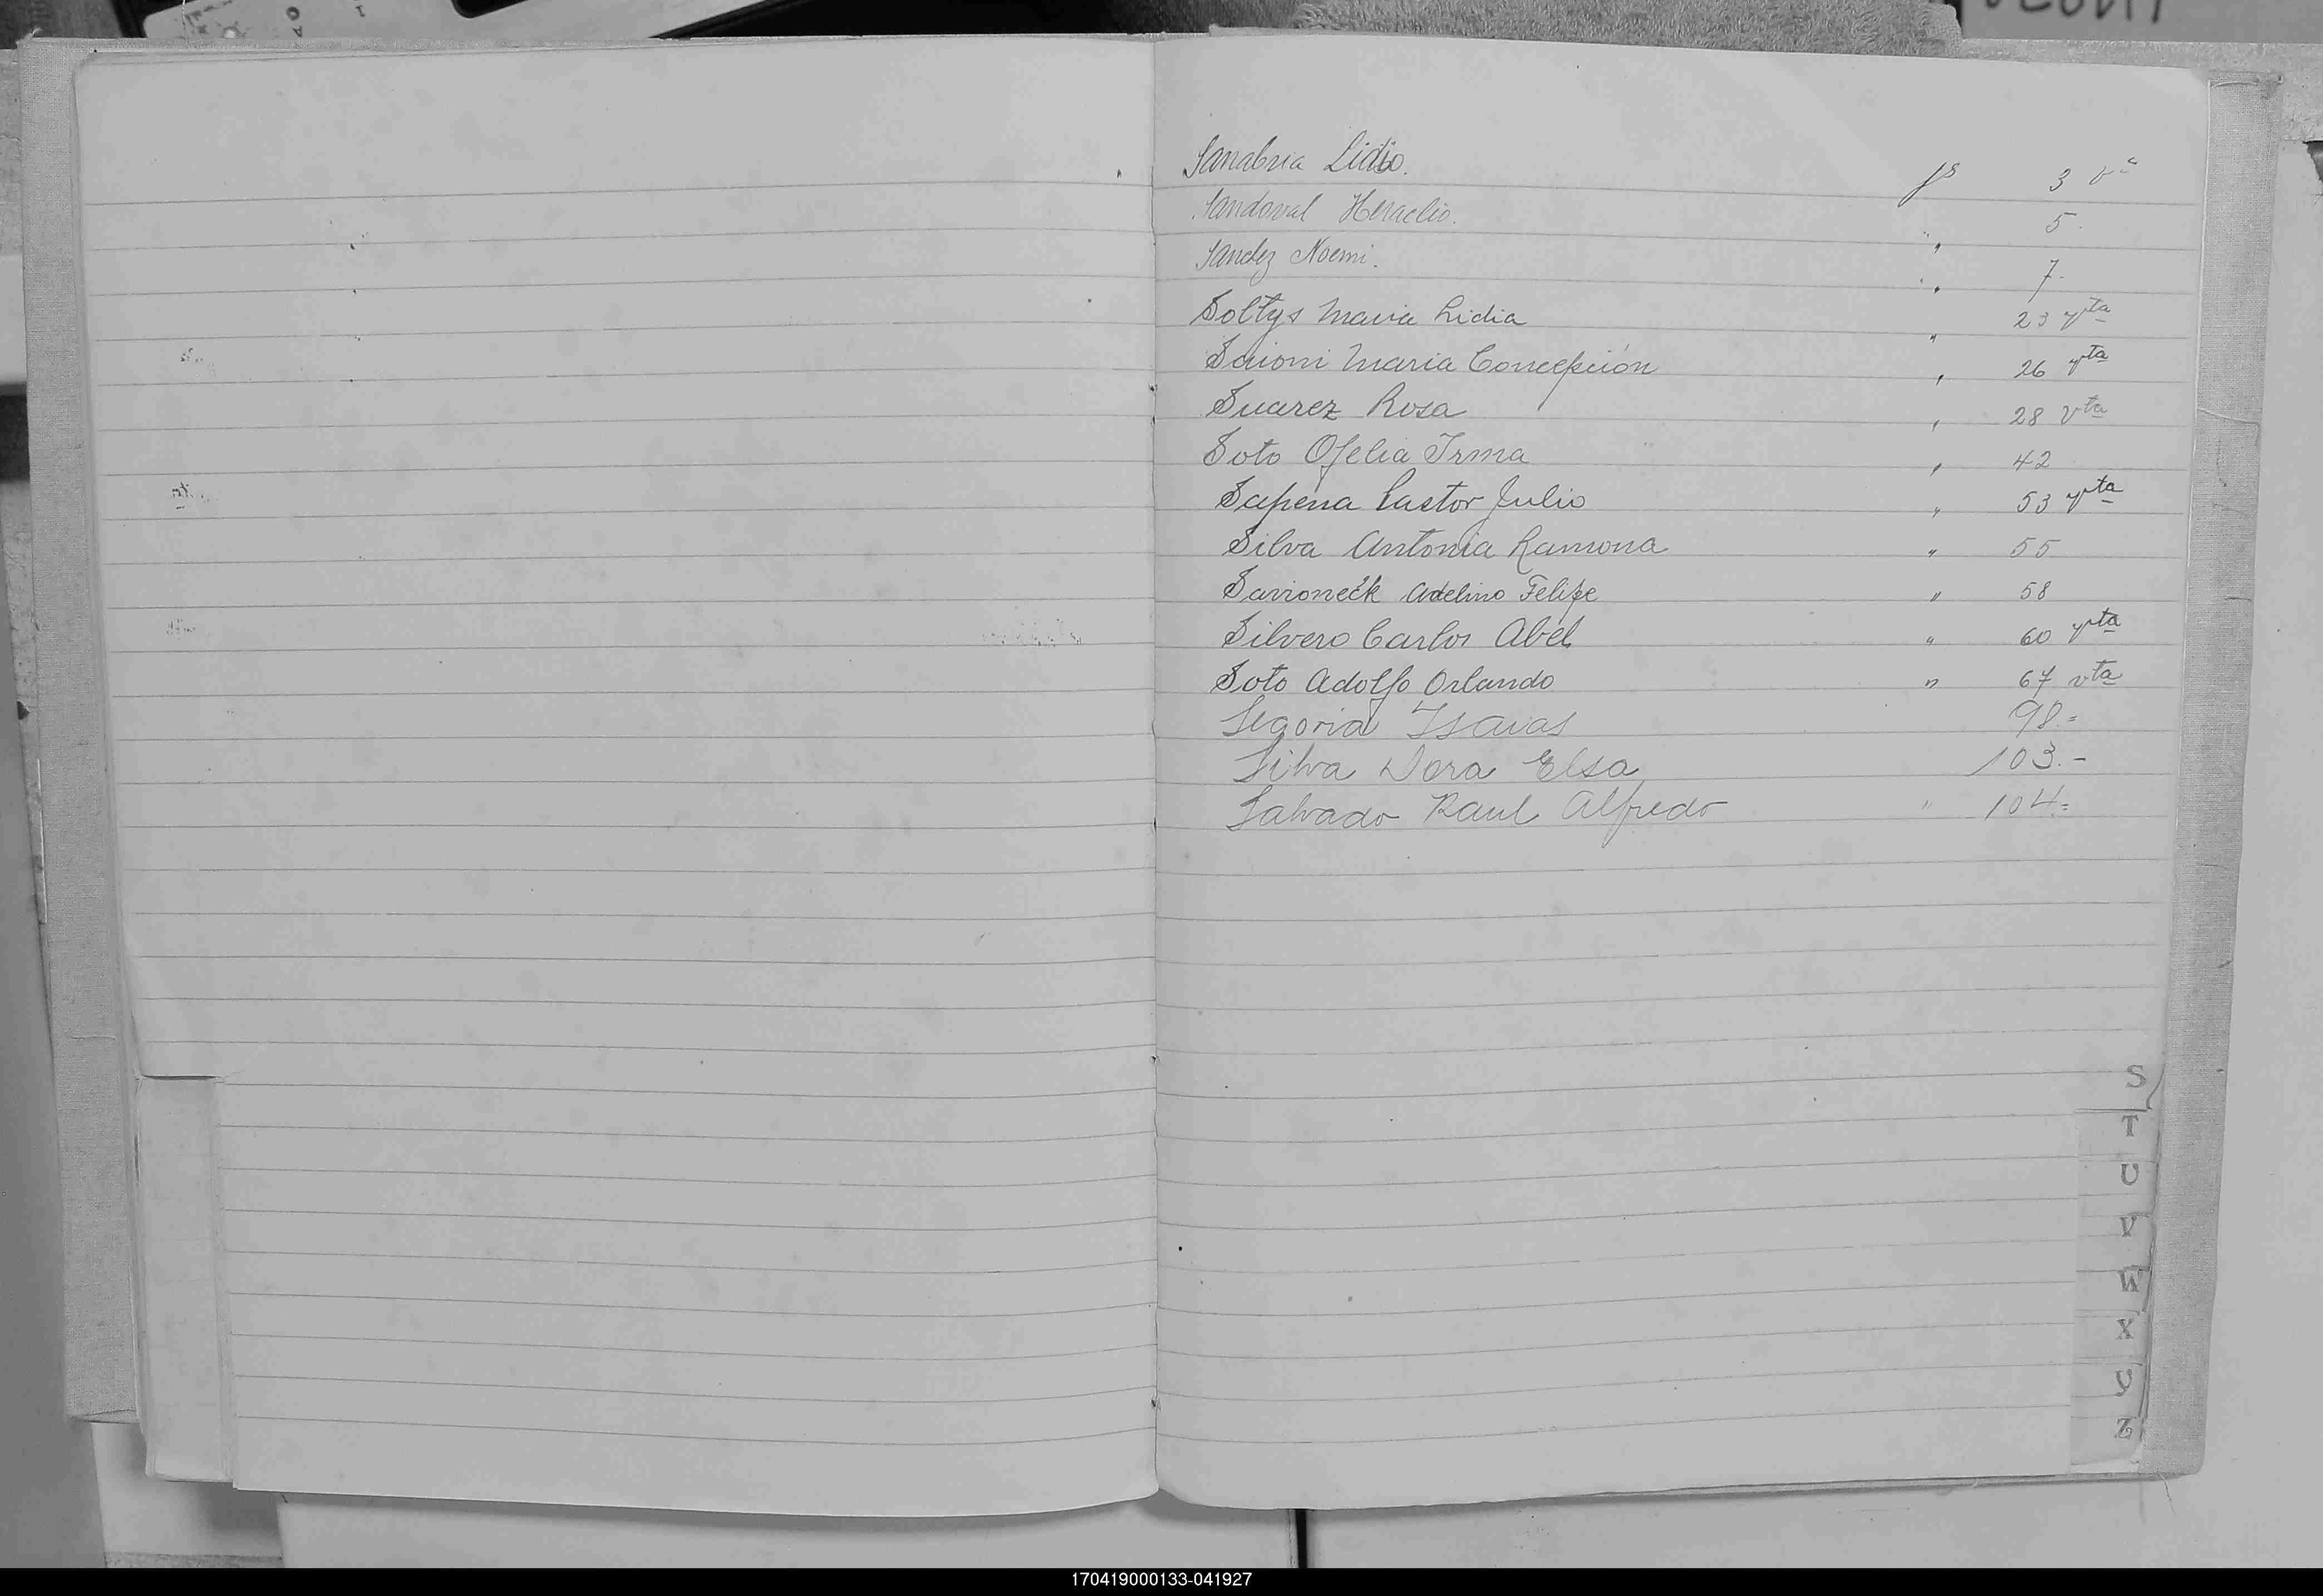 Sanabria Lidio. fs 3 vta
Sandoval Heraclio. " 5.
Sandez Noemi. " 7.
Soltys Maria Lidia " 23 vta
Saioni Maria Concepción " 26 vta
Suarez Rosa " 28 vta
Soto Ofelia Irma " 42
Sapena Pastor Julio " 53 vta
Silva Antonia Ramona " 55
Savioneck Adelino Felipe " 58
Silvero Carlos Abel " 60 vta
Soto Adolfo Orlando " 67 vta
Segovia Isaias 98.=
Silva Dora Elsa 103.-
Salvado Raul Alfredo " 104.=
S
T
U
V
W
X
Y
Z
170419000133-041927